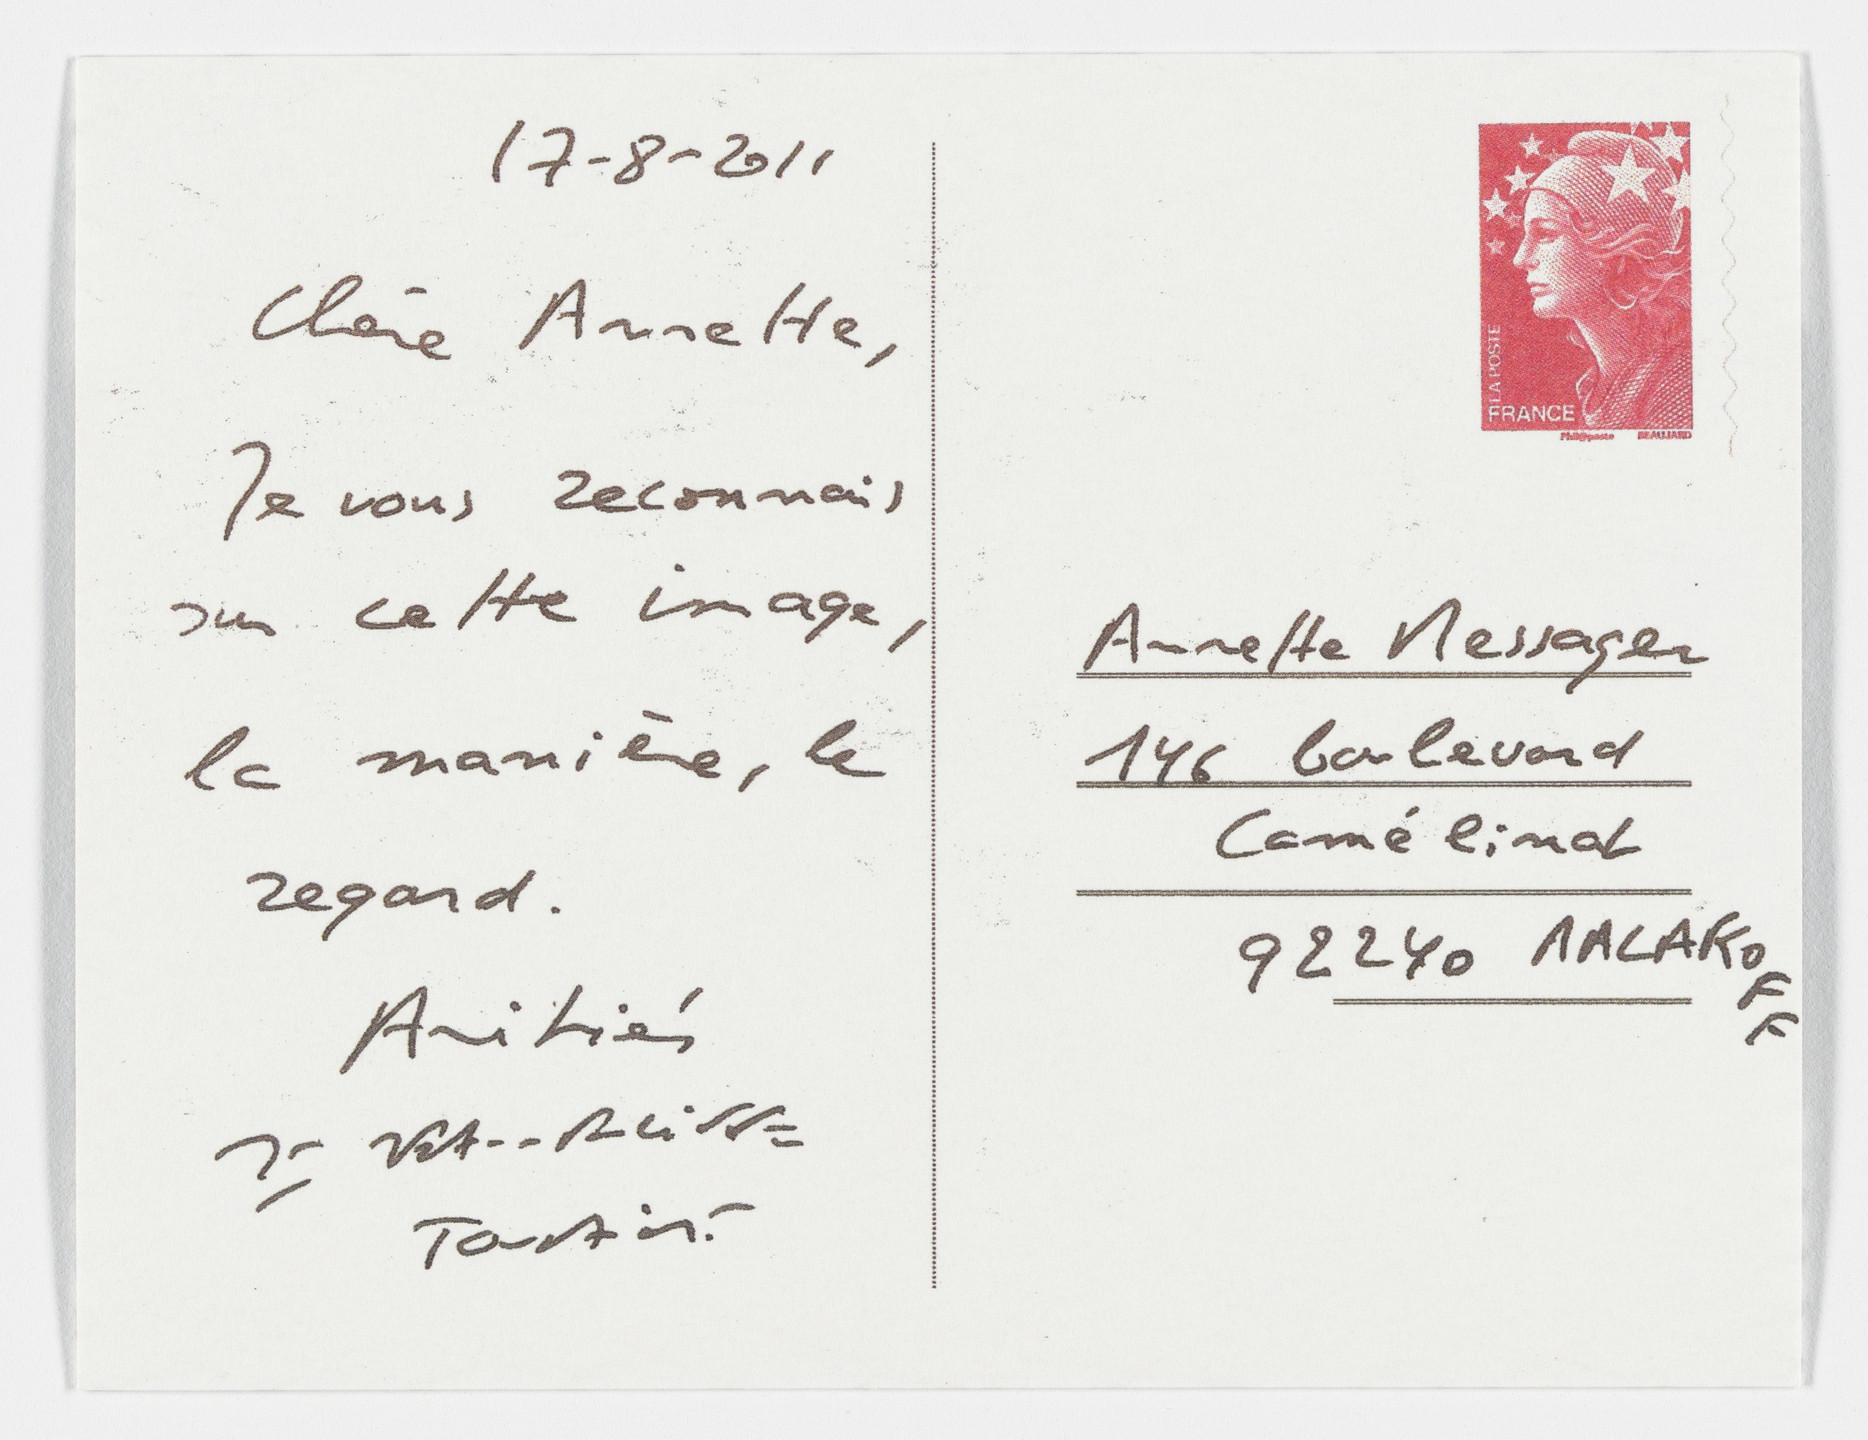 17-8-2011
Chère Annette,
Je vous reconnais
sur cette image,
la manière, le
regard.
Amitiés
Jean-Philippe
Toussaint
LA POSTE
FRANCE
Phil@poste BEAUJARD
Annette Messager
146 boulevard
Camélinat
92240 MALAKOFF